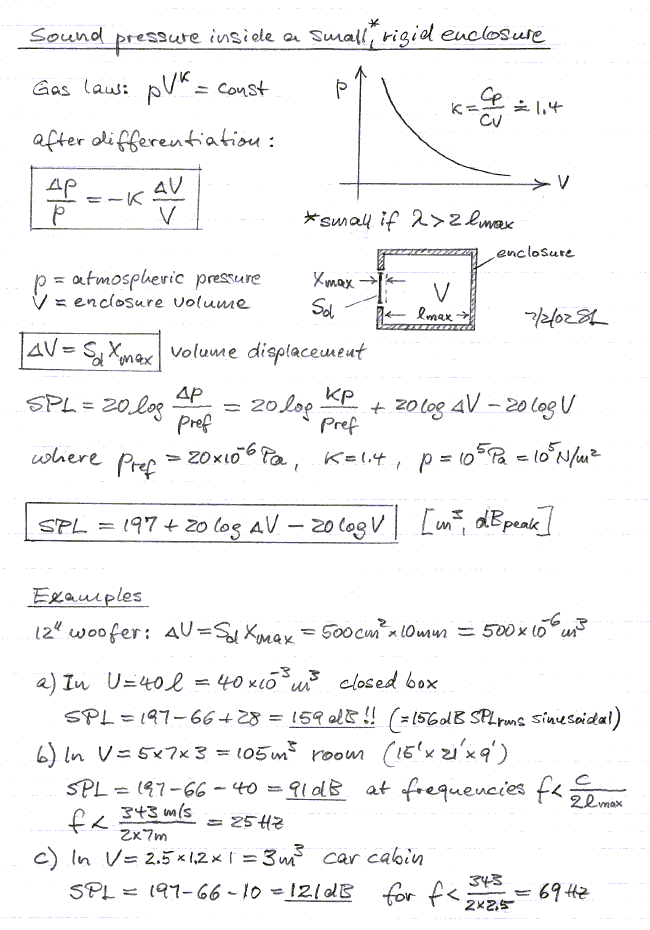 Sound pressure inside a small,* rigid enclosure
Gas law: pV^κ = const
p
κ = Cp/Cv ≐ 1.4
after differentiation:
V
Δp/p = -κ ΔV/V
*small if λ > 2 lmax
enclosure
p = atmospheric pressure
V = enclosure volume
Xmax
Sd
V
lmax
7/2/02 SL
ΔV = Sd Xmax volume displacement
SPL = 20 log Δp/pref = 20 log κp/pref + 20 log ΔV - 20 log V
where pref = 20×10^-6 Pa, κ = 1.4, p = 10^5 Pa = 10^5 N/m²
SPL = 197 + 20 log ΔV - 20 log V [m³, dBpeak]
Examples
12" woofer: ΔV = Sd Xmax = 500cm² × 10mm = 500 × 10^-6 m³
a) In V = 40 l = 40 × 10^-3 m³ closed box
SPL = 197 - 66 + 28 = 159 dB!! (= 156 dB SPLrms sinusoidal)
b) In V = 5×7×3 = 105 m³ room (15' × 21' × 9')
SPL = 197 - 66 - 40 = 91 dB at frequencies f < c/2lmax
f < 343 m/s / 2×7m = 25 Hz
c) In V = 2.5 × 1.2 × 1 = 3 m³ car cabin
SPL = 197 - 66 - 10 = 121 dB for f < 343/2×2.5 = 69 Hz